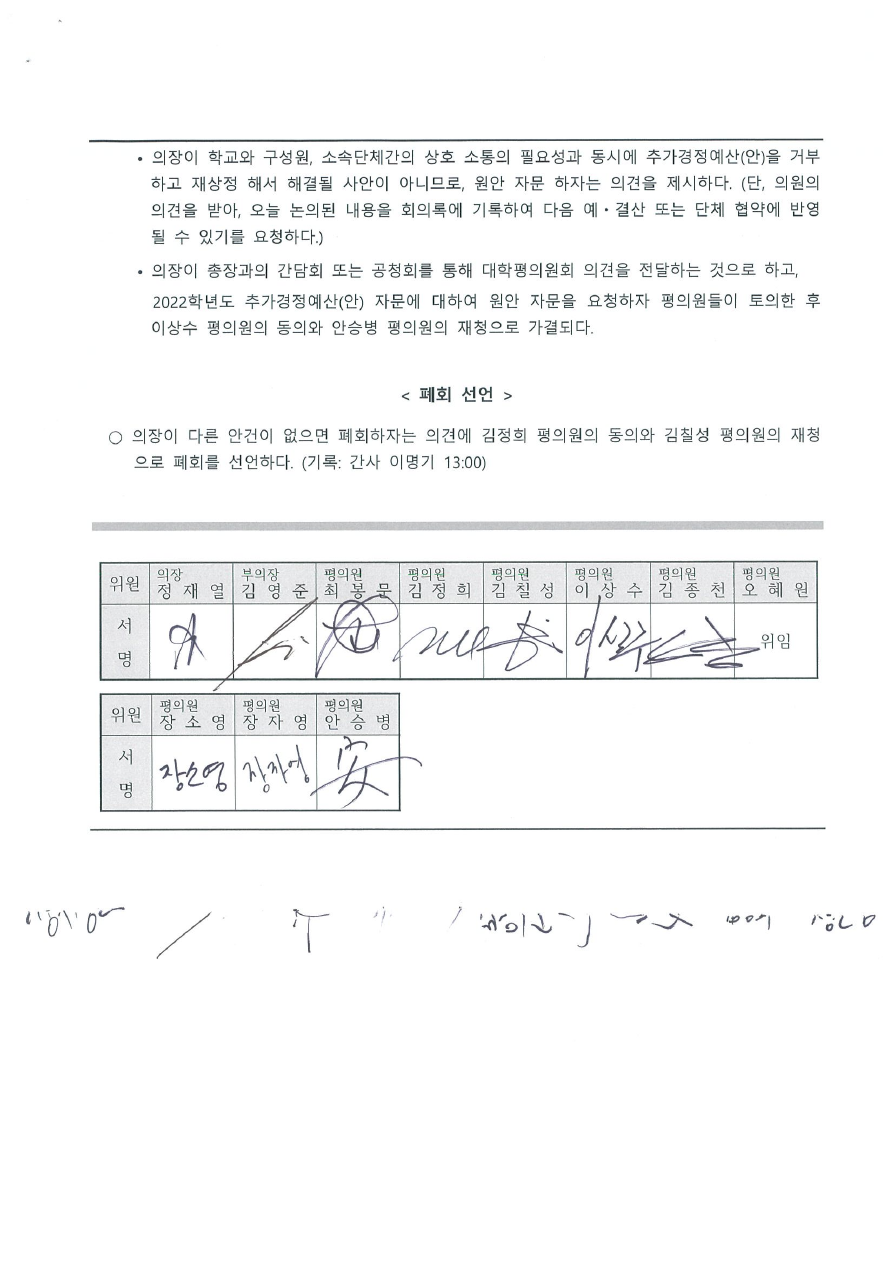 • 의장이 학교와 구성원, 소속단체간의 상호 소통의 필요성과 동시에 추가경정예산(안)을 거부
하고 재상정 해서 해결될 사안이 아니므로, 원안 자문 하자는 의견을 제시하다. (단, 의원의
의견을 받아, 오늘 논의된 내용을 회의록에 기록하여 다음 예·결산 또는 단체 협약에 반영
될 수 있기를 요청하다.)
• 의장이 총장과의 간담회 또는 공청회를 통해 대학평의원회 의견을 전달하는 것으로 하고,
2022학년도 추가경정예산(안) 자문에 대하여 원안 자문을 요청하자 평의원들이 토의한 후
이상수 평의원의 동의와 안승병 평의원의 재청으로 가결되다.
< 폐회 선언 >
○ 의장이 다른 안건이 없으면 폐회하자는 의견에 김정희 평의원의 동의와 김칠성 평의원의 재청
으로 폐회를 선언하다. (기록: 간사 이명기 13:00)
위원 의장 부의장 평의원 평의원 평의원 평의원 평의원 평의원
정 재 열 김 영 준 최 봉 문 김 정 희 김 칠 성 이 상 수 김 종 천 오 혜 원
서 명 이상수 위임
위원 평의원 평의원 평의원
장 소 영 장 자 영 안 승 병
서 명 장소영 장자영 安